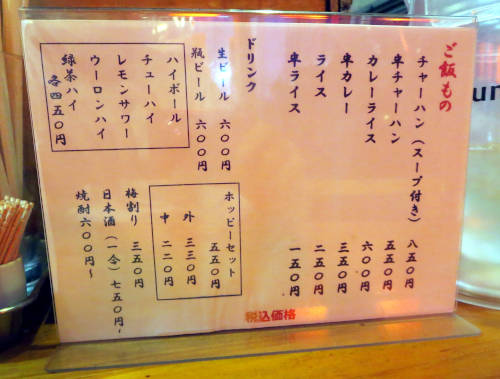 ご飯もの
チャーハン(スープ付き) 八五〇円
半チャーハン 五五〇円
カレーライス 六〇〇円
半カレー 三五〇円
ライス 二五〇円
半ライス 一五〇円
ドリンク
生ビール 六〇〇円
瓶ビール 六〇〇円
ハイボール
チューハイ
レモンサワー
ウーロンハイ
緑茶ハイ
各四五〇円
ホッピーセット
五五〇円
外 三三〇円
中 二二〇円
梅割り 三五〇円
日本酒(一合)七五〇円~
焼酎六〇〇円~
税込価格
un